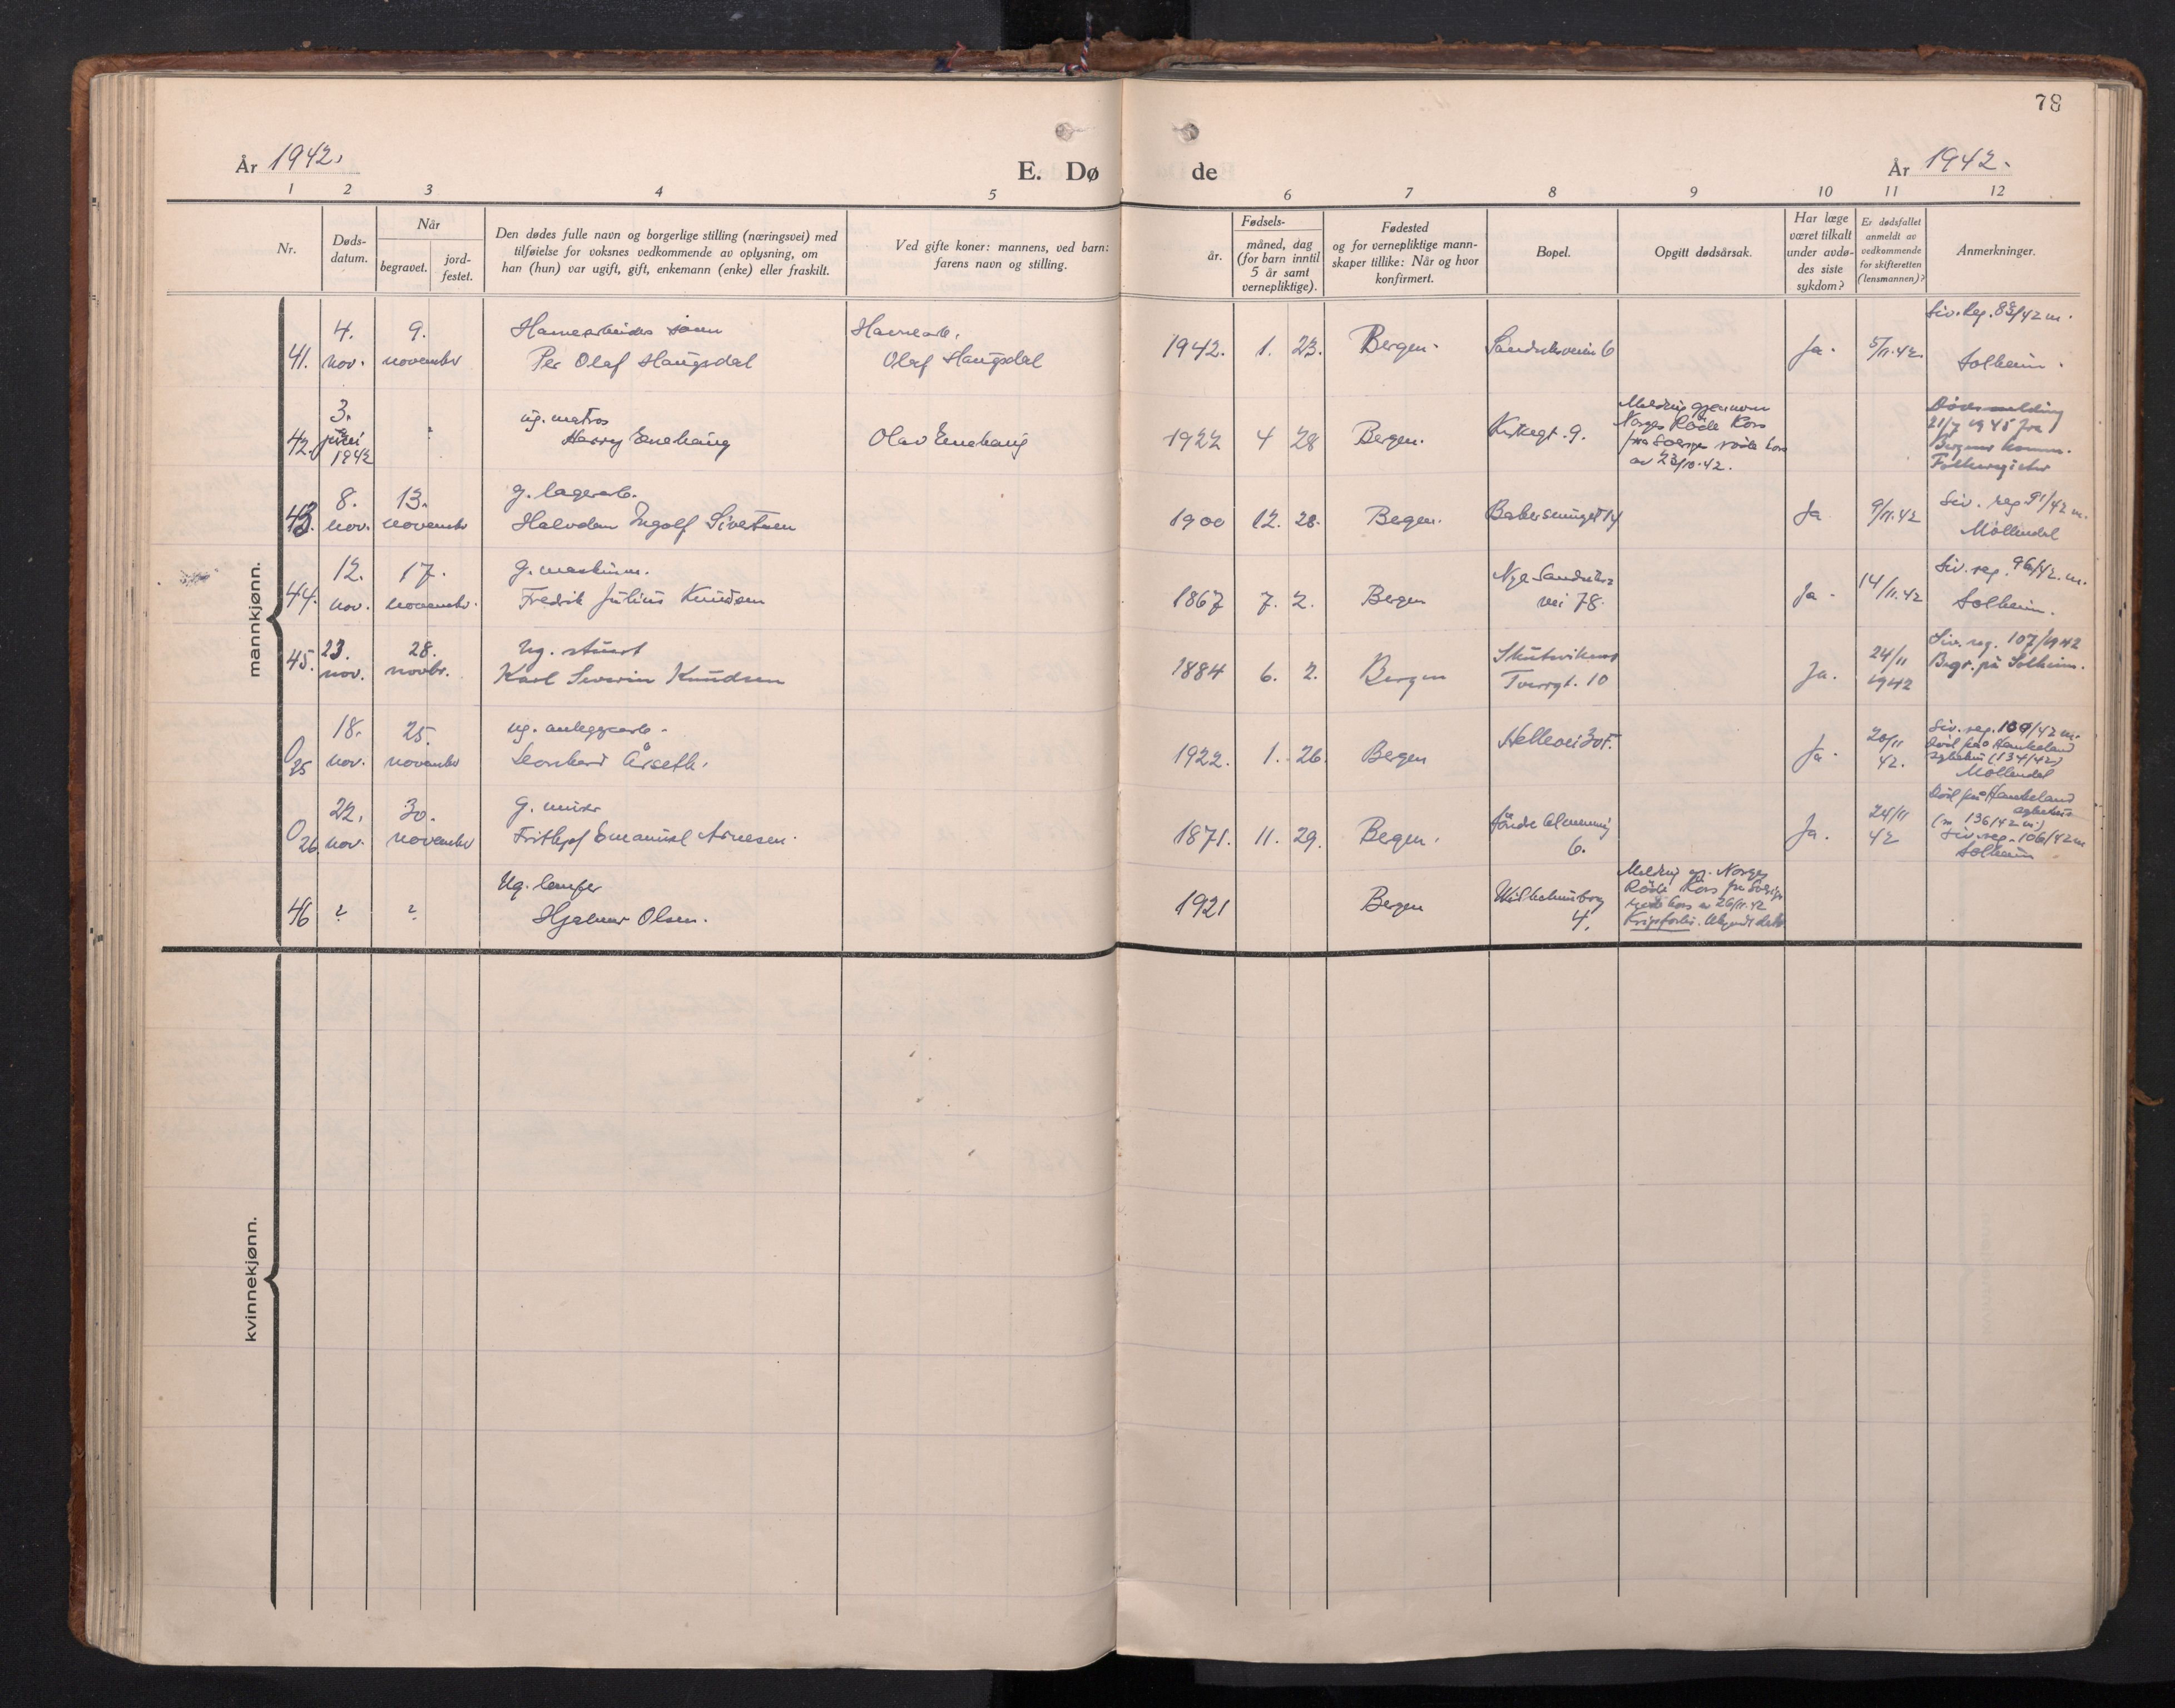 78
År 1942.
E. Dø de
År 1942.
1 2 3 4 5 6 7 8 9 10 11 12
Nr.
Døds-
datum.
Når
begravet.
jord-
festet.
Den dødes fulle navn og borgerlige stilling (næringsvei) med
tilføielse for voksnes vedkommende av oplysning, om
han (hun) var ugift, gift, enkemann (enke) eller fraskilt.
Ved gifte koner: mannens, ved barn:
farens navn og stilling.
Fødsels-
år.
måned, dag
(for barn inntil
5 år samt
vernepliktige).
Fødested
og for vernepliktige mann-
skaper tillike: Når og hvor
konfirmert.
Bopel.
Opgitt dødsårsak.
Har læge
været tilkalt
under avdø-
des siste
sykdom?
Er dødsfallet
anmeldt av
vedkommende
for skifteretten
(lensmannen)?
Anmerkninger.
mannkjønn.
4. 9. Havnearbeiders sønn Havnearb. Siv. reg. 83/42 m.
41. nov. november Per Olaf Haugsdal Olaf Haugsdal 1942. 1. 23. Bergen. Sandviksveien 6 Ja. 5/11.42. Solheim.
3. ug. matros Melding gjennom Dødsmelding
42. juni ? Harry Enehaug Olav Enehaug 1922 4 28 Bergen. Kirkegt. 9. Norges Røde Kors 21/7 1945 fra
1942 fra Sveriges røde kors Bergens komm.
av 23/10.42. Folkeregister
8. 13. g. lagerarb. Siv. reg. 91/42 m.
43. nov. november Halvdan Ingolf Sivertsen 1900 12. 28. Bergen. 14 Ja 9/11.42 Møllendal
12. 17. g. maskinm. Nye Sandviks- Siv. reg. 96/42. m.
44. nov. november. Fredrik Julius Knudsen 1867 7. 2. Bergen vei 78. Ja. 14/11.42 Solheim.
23. 28. Ug. stuert Skutevikens 24/11 Siv. reg. 107/1942
45. nov. novbr. Karl Severin Knudsen 1884 6. 2. Bergen Tverrgt. 10 Ja. 1942 Begr. på Solheim.
18. 25. ug. anleggsarb. 20/11 Siv. reg. 100/42 m.
O 25 nov. november Leonhard Årseth. 1922. 1. 26. Bergen Hellevei 30 F. Ja. 42. Død på Haukeland
sykehus (134/42)
Møllendal
22. 30. g. murer 24/11 Død på Haukeland
sykehus
O 26. nov. november Frithjof Emanuel Arnesen. 1871. 11. 29. Bergen. Søndre Almenning 6. Ja. 42 (nr. 136/42 m.)
Siv. reg. 106/42 m
Solheim
Ug. lemper Melding gj. Norges
46 ? ? Hjalmar Olsen. 1921 Bergen Wilhelmsborg 4. Røde Kors fra Sveriges
røde kors av 26/11.42
Krigsforlis. Ukjent dato
kvinnekjønn.